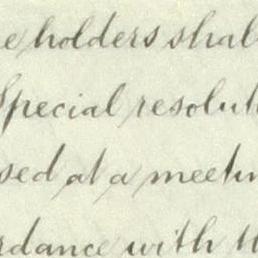 e holders shal
Special resolut
sed at a meetin
rdance with th